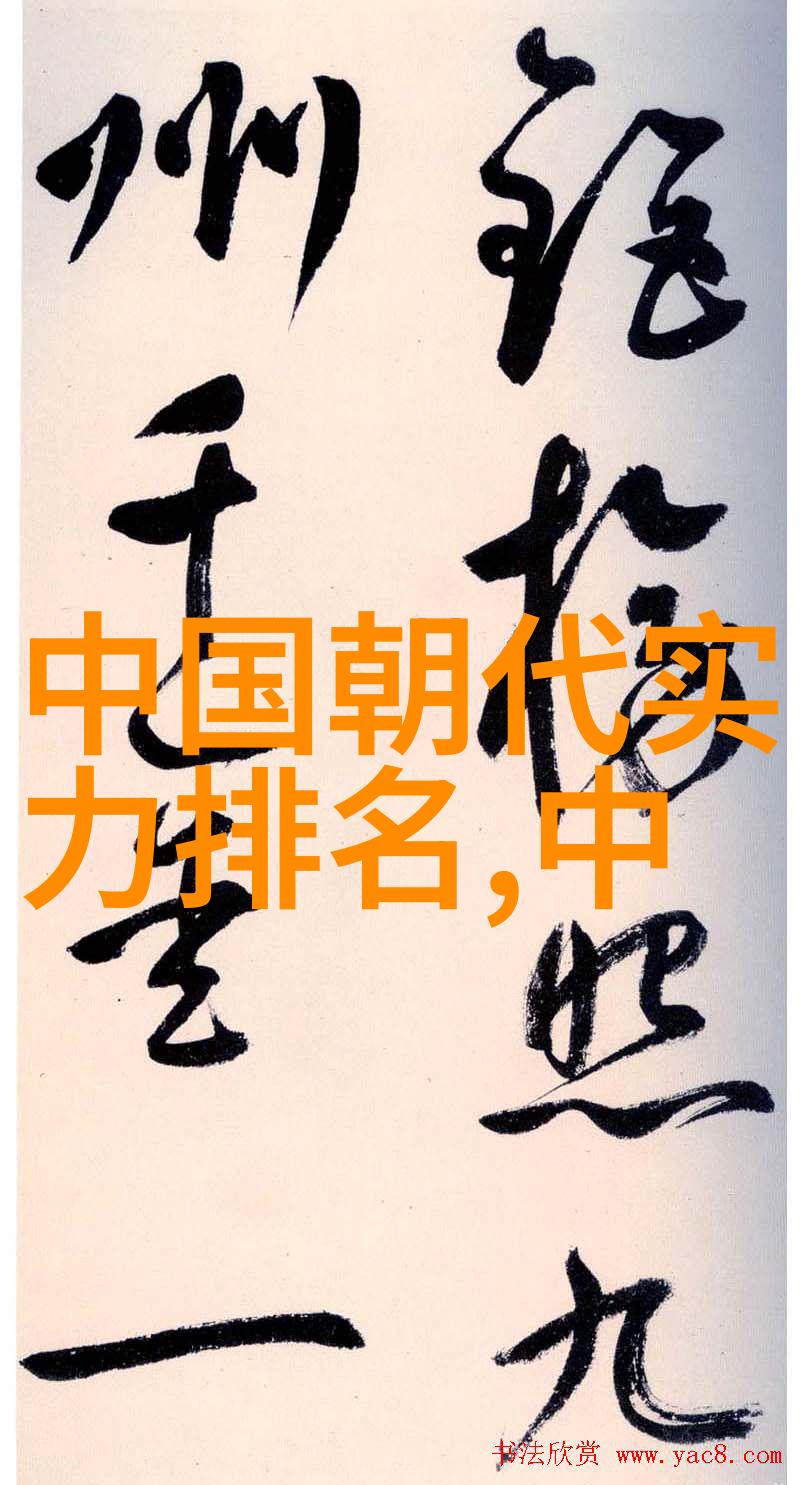 中国朝代实
力排名,中
照九
州千里一
书法欣赏 www.yac8.com